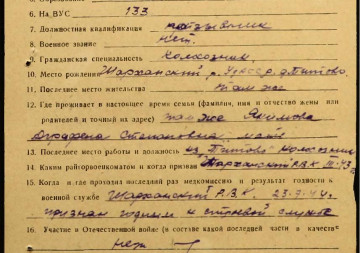 6. На ВУС 133
7. Должностная квалификация
8. Военное звание нет.
9. Гражданская специальность Колхозник
10. Место рождения Шарканский р. УАССР, д. Титово.
11. Последнее место жительства Там же
12. Где проживает в настоящее время семья (фамилия, имя и отчество жены или
родителей и точный их адрес) там же Якимова
Аграфена Степановна, мать
13. Последнее место работы и должность Титово колхозник
14. Каким райгорвоенкоматом и когда призван Шарканский РВК III-43 г.
15. Когда и где проходил последний раз медкомиссию и результат годности к
военной службе Шарканский РВК 23-9-44 г.
признан годным к строевой службе
16. Участие в Отечественной войне (в составе какой последней части в качест-
нет